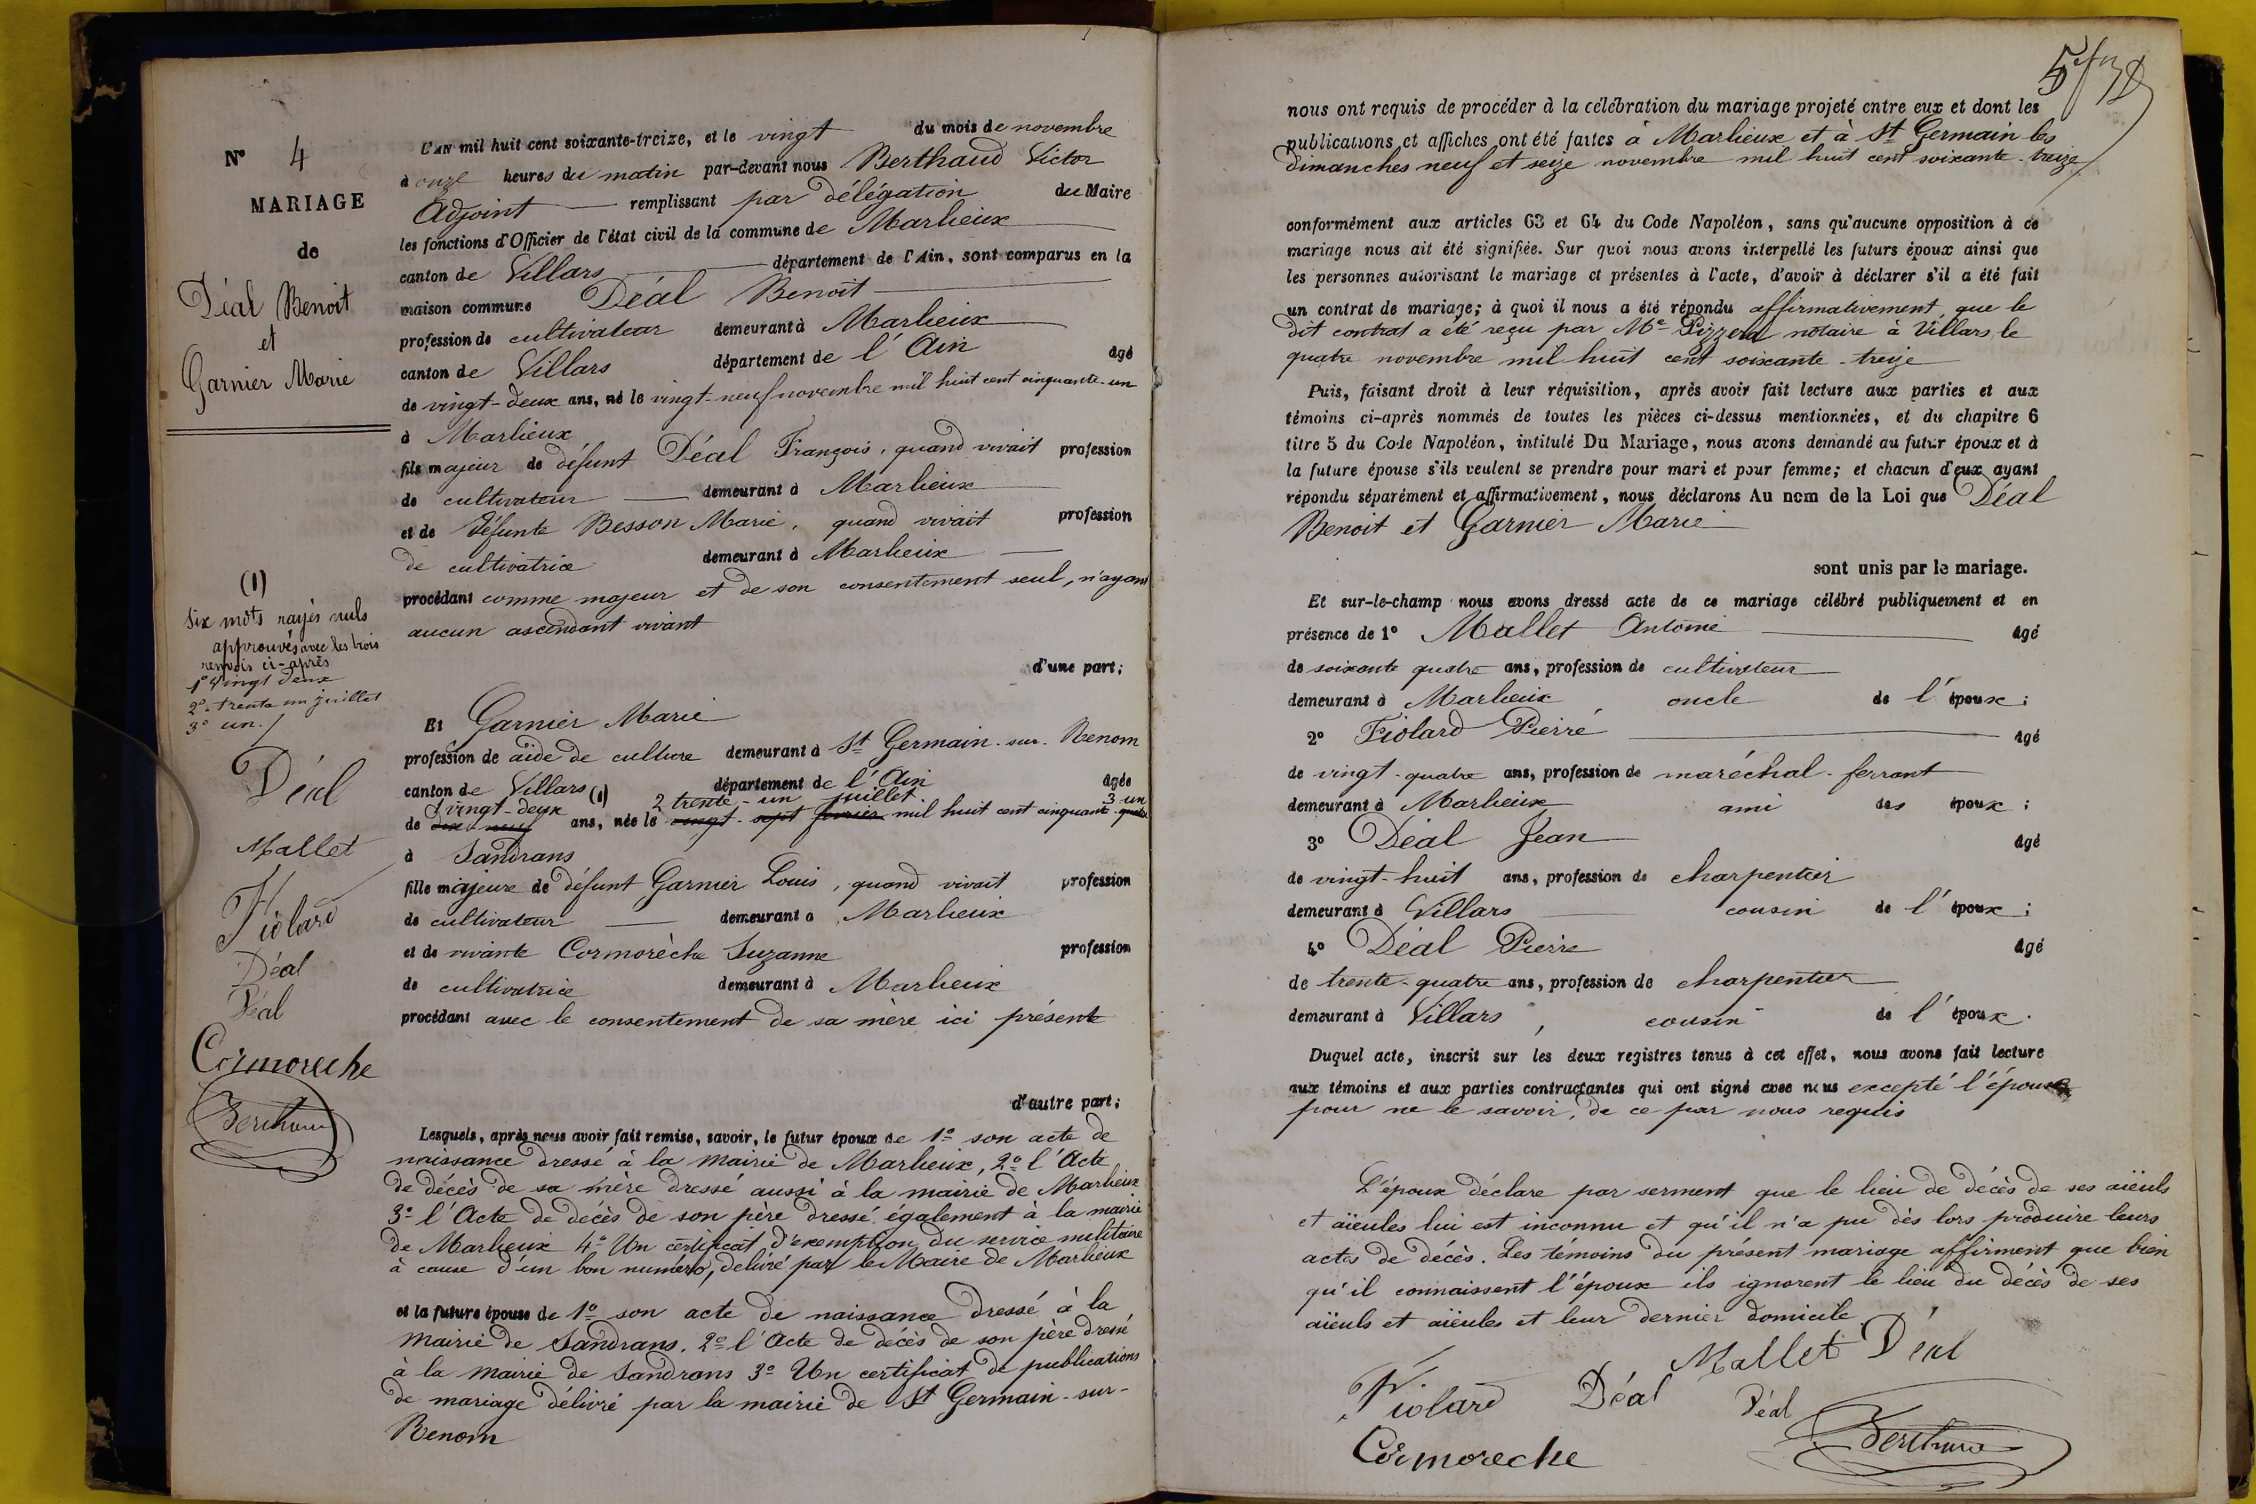 N° 4
MARIAGE
de
Déal Benoit
et
Garnier Marie
L'AN mil huit cent soixante-treize, et le vingt du mois de novembre
à onze heures du matin par-devant nous Berthaud Victor
Adjoint remplissant par délégation du Maire
les fonctions d'Officier de l'état civil de la commune de Marlieux
canton de Villars département de l'Ain, sont comparus en la
maison commune Déal Benoit
profession de cultivateur demeurant à Marlieux
canton de Villars département de l'Ain âgé
de vingt-deux ans, né le vingt-neuf novembre mil huit cent cinquante-un
à Marlieux
fils majeur de défunt Déal François, quand vivait profession
de cultivateur demeurant à Marlieux
et de défunte Besson Marie, quand vivait profession
de cultivatrice demeurant à Marlieux
procédant comme majeur et de son consentement seul, n'ayant
aucun ascendant vivant
d'une part;
(1)
Six mots rayés nuls
approuvés avec les trois
renvois ci-après
1° Vingt deux
2° trente un juillet
3° un.
Déal
Mallet
Fiolard
Déal
Déal
Cormoreche
Berthaud
Et Garnier Marie
profession de aide de culture demeurant à St Germain-sur-Renom
canton de Villars (1) département de l'Ain âgée
1 vingt-deux 2 trente-un juillet 3 un
de dix-neuf ans, née le vingt-sept février mil huit cent cinquante-quatre
à Sandrans
fille majeure de défunt Garnier Louis, quand vivait profession
de cultivateur demeurant à Marlieux
et de vivante Cormorèche Suzanne profession
de cultivatrice demeurant à Marlieux
procédant avec le consentement de sa mère ici présente
d'autre part;
Lesquels, après nous avoir fait remise, savoir, le futur époux de 1° son acte de
naissance dressé à la mairie de Marlieux, 2° l'Acte
de décès de sa mère dressé aussi à la mairie de Marlieux
3° l'Acte de décès de son père dressé également à la mairie
de Marlieux 4° Un certificat d'exemption du service militaire
à cause d'un bon numéro, délivré par le Maire de Marlieux
et la future épouse de 1° son acte de naissance dressé à la
mairie de Sandrans. 2° l'Acte de décès de son père dressé
à la mairie de Sandrans 3° Un certificat de publications
de mariage délivré par la mairie de St Germain-sur-
Renom
5
nous ont requis de procéder à la célébration du mariage projeté entre eux et dont les
publications et affiches ont été faites à Marlieux et à St Germain les
dimanches neuf et seize novembre mil huit cent soixante-treize
conformément aux articles 63 et 64 du Code Napoléon, sans qu'aucune opposition à ce
mariage nous ait été signifiée. Sur quoi nous avons interpellé les futurs époux ainsi que
les personnes autorisant le mariage et présentes à l'acte, d'avoir à déclarer s'il a été fait
un contrat de mariage; à quoi il nous a été répondu affirmativement, que le
dit contrat a été reçu par Me notaire à Villars le
quatre novembre mil huit cent soixante-treize
Puis, faisant droit à leur réquisition, après avoir fait lecture aux parties et aux
témoins ci-après nommés de toutes les pièces ci-dessus mentionnées, et du chapitre 6
titre 5 du Code Napoléon, intitulé Du Mariage, nous avons demandé au futur époux et à
la future épouse s'ils veulent se prendre pour mari et pour femme; et chacun d'eux ayant
répondu séparément et affirmativement, nous déclarons Au nom de la Loi que Déal
Benoit et Garnier Marie
sont unis par le mariage.
Et sur-le-champ nous avons dressé acte de ce mariage célébré publiquement et en
présence de 1° Mallet Antoine âgé
de soixante quatre ans, profession de cultivateur
demeurant à Marlieux oncle de l'époux;
2° Fiolard Pierre âgé
de vingt-quatre ans, profession de maréchal-ferrant
demeurant à Marlieux ami des époux;
3° Déal Jean âgé
de vingt-huit ans, profession de charpentier
demeurant à Villars cousin de l'époux;
4° Déal Pierre âgé
de trente-quatre ans, profession de charpentier
demeurant à Villars, cousin de l'époux.
Duquel acte, inscrit sur les deux registres tenus à cet effet, nous avons fait lecture
aux témoins et aux parties contractantes qui ont signé avec nous excepté l'épouse
pour ne le savoir, de ce par nous requis
L'époux déclare par serment que le lieu de décès de ses aïeuls
et aïeules lui est inconnu et qu'il n'a pu dès lors produire leurs
actes de décès. Les témoins du présent mariage affirment que bien
qu'il connaissent l'époux ils ignorent le lieu du décès de ses
aïeuls et aïeules et leur dernier domicile
Mallet Déal
Fiolard Déal Déal
Cormoreche Berthaud